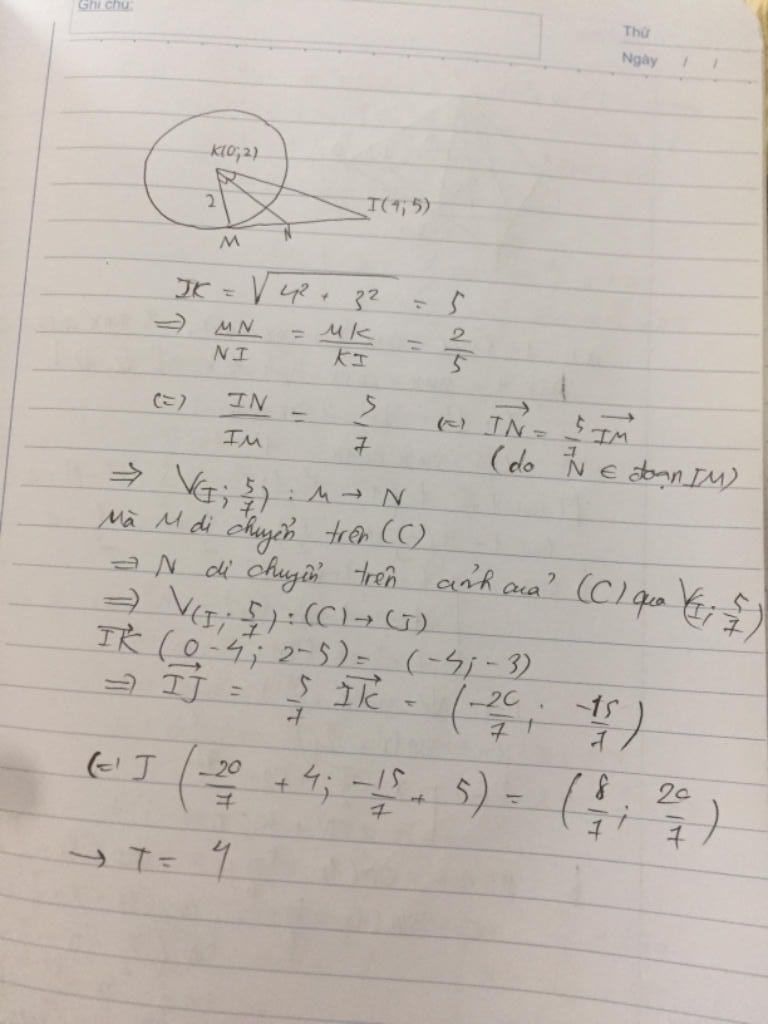 Ghi chú:
Thứ
Ngày / /
K(0;2)
2
I(4;5)
M
N
IK = √(4² + 3²) = 5
⇒ MN/NI = MK/KI = 2/5
(=) IN/IM = 5/7 (=) \overrightarrow{IN} = 5/7 \overrightarrow{IM}
(do N ∈ đoạn IM)
⇒ V(I; 5/7) : M → N
Mà M di chuyển trên (C)
⇒ N di chuyển trên ảnh của (C) qua V(I; 5/7)
⇒ V(I; 5/7) : (C) → (J)
\overrightarrow{IK} (0-4; 2-5) = (-4; -3)
⇒ \overrightarrow{IJ} = 5/7 \overrightarrow{IK} = (-20/7; -15/7)
(=) J (-20/7 + 4; -15/7 + 5) = (8/7; 20/7)
→ T = 4